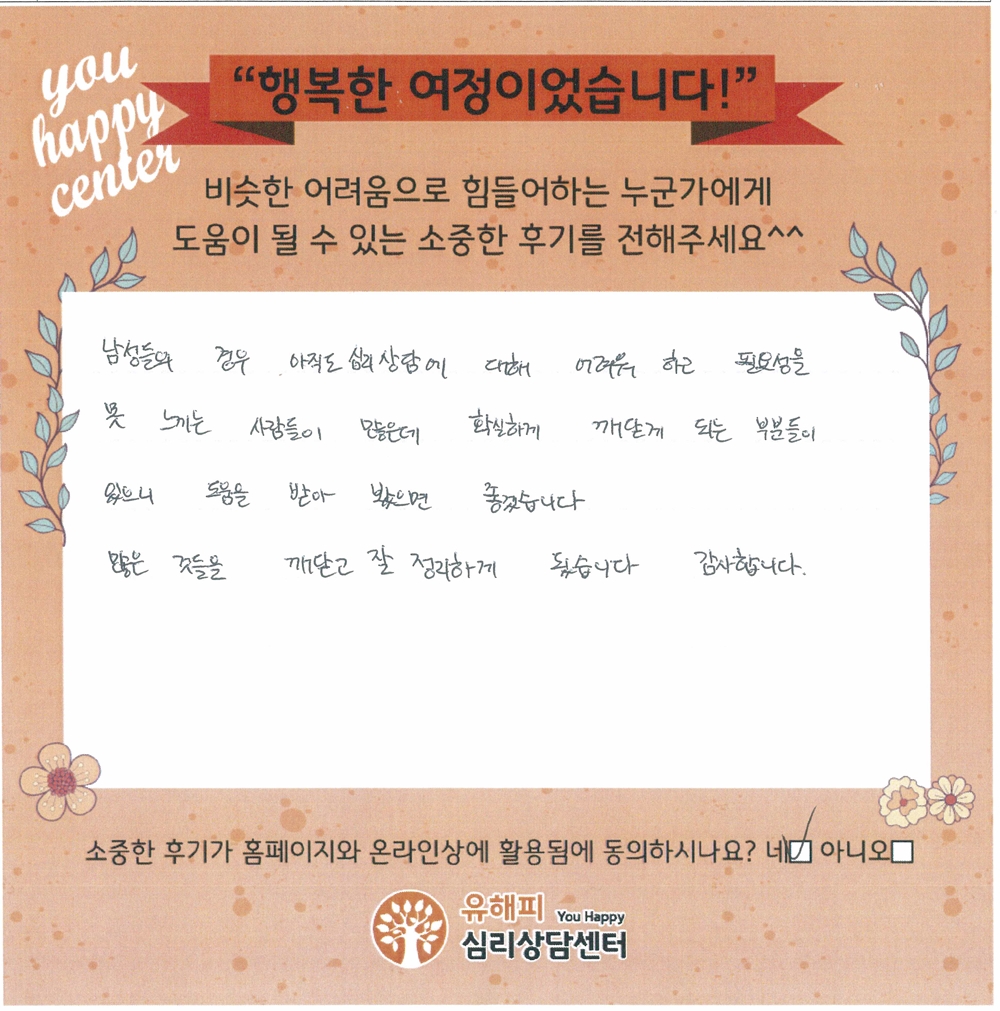 you
happy
center
“행복한 여정이었습니다!”
비슷한 어려움으로 힘들어하는 누군가에게
도움이 될 수 있는 소중한 후기를 전해주세요^^
남성들의 경우 아직도 심리상담에 대해 어려워 하고 필요성을
못 느끼는 사람들이 많은데 확실하게 깨닫게 되는 부분들이
있으니 도움을 받아 봤으면 좋겠습니다
많은 것들을 깨닫고 잘 정리하게 됐습니다 감사합니다.
소중한 후기가 홈페이지와 온라인상에 활용됨에 동의하시나요? 네 아니오
유해피 You Happy
심리상담센터